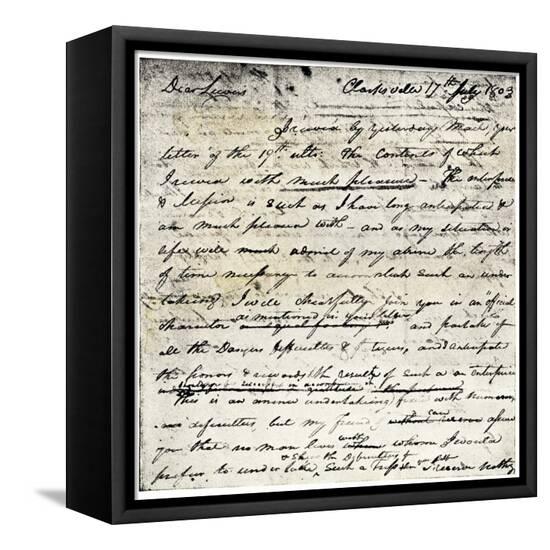 Dear Lewis Clarksville 17th July 1803
I received by yesterday's Mail, your
letter of the 19th ulto. the Contents of which
I received with much pleasure - The enterprise
& Mission is such as I have long anticipated &
am much pleased with - and as my situation in
life will admit of my absence the length
of time necessary to accomplish such an under
taking I will cheerfully join you in an "official
Charrector" as mentioned in your letter and partake of
all the Dangers Difficulties & fatigues, and anticipate
the honors & rewards of the result of such an enterprise
This is an undertaking with numerous
difficulties, but my friend I can assure
you that no man lives with whom I would
prefer to undertake & share the Difficulties of such a trip than